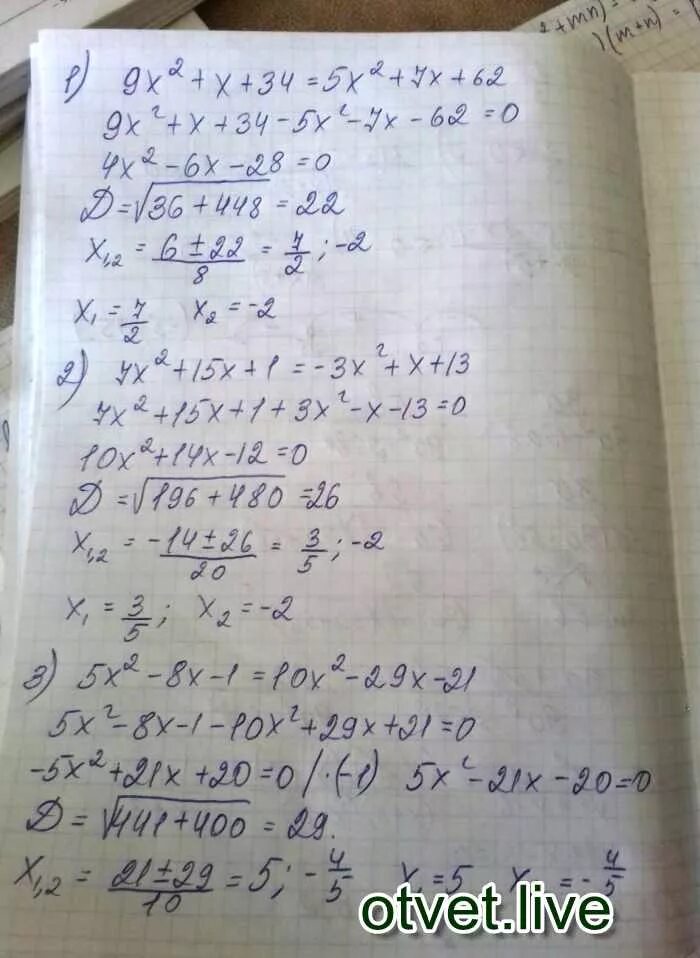 ² + mn) =
)(m+n) =
1) 9x² + x + 34 = 5x² + 7x + 62
9x² + x + 34 - 5x² - 7x - 62 = 0
4x² - 6x - 28 = 0
D = √36 + 448 = 22
x₁,₂ = (6 ± 22)/8 = 7/2 ; -2
x₁ = 7/2 x₂ = -2
2) 7x² + 15x + 1 = -3x² + x + 13
7x² + 15x + 1 + 3x² - x - 13 = 0
10x² + 14x - 12 = 0
D = √196 + 480 = 26
x₁,₂ = (-14 ± 26)/20 = 3/5 ; -2
x₁ = 3/5 ; x₂ = -2
3) 5x² - 8x - 1 = 10x² - 29x - 21
5x² - 8x - 1 - 10x² + 29x + 21 = 0
-5x² + 21x + 20 = 0 / · (-1) 5x² - 21x - 20 = 0
D = √441 + 400 = 29.
x₁,₂ = (21 ± 29)/10 = 5 ; -4/5 x₁ = 5 x = -4/5
otvet.live